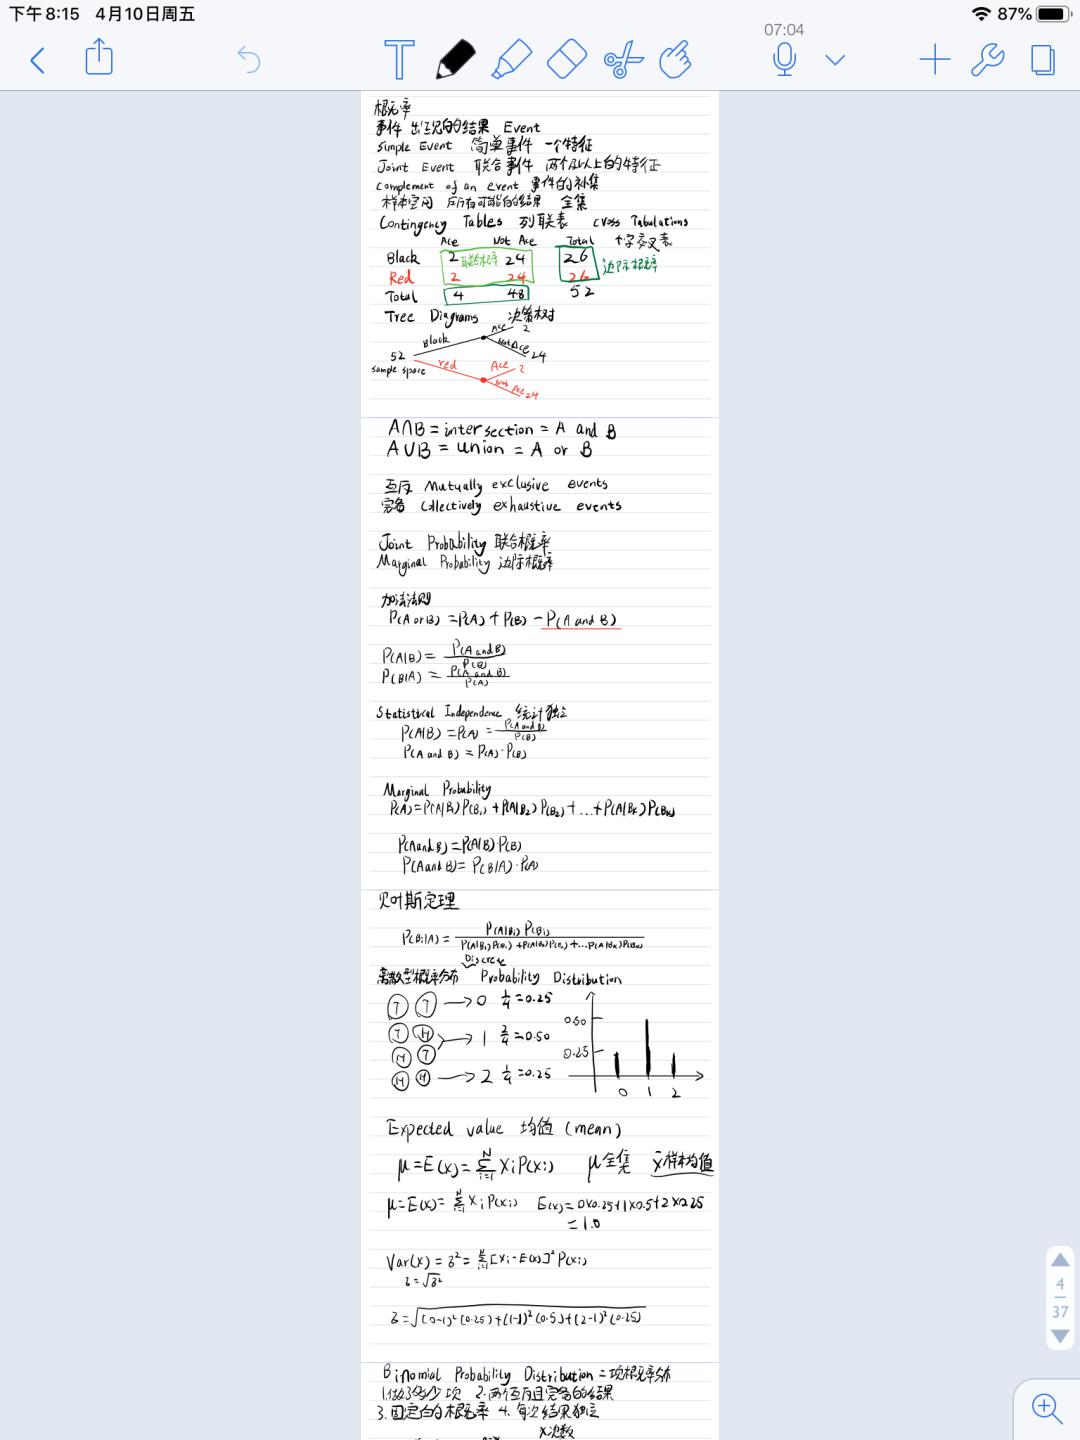 下午8:15 4月10日周五
87%
07:04
概率
事件 出现的结果 Event
Simple Event 简单事件 一个特征
Joint Event 联合事件 两个及以上的特征
Complement of an event 事件的补集
样本空间 所有可能的结果 全集
Contingency Tables 列联表 cross Tabulations
Ace Not Ace Total 十字交叉表
Black 2 联合概率 24 26 边际概率
Red 2 24 26
Total 4 48 52
Tree Diagrams 决策树
Black Ace 2
Not Ace 24
52
sample space
red Ace 2
Not Ace 24
A∩B = intersection = A and B
A∪B = union = A or B
互斥 Mutually exclusive events
完备 Collectively exhaustive events
Joint Probability 联合概率
Marginal Probability 边际概率
加法法则
P(A or B) = P(A) + P(B) - P(A and B)
P(A|B) = P(A and B) / P(B)
P(B|A) = P(A and B) / P(A)
Statistical Independence 统计独立
P(A|B) = P(A) = P(A and B) / P(B)
P(A and B) = P(A)·P(B)
Marginal Probability
P(A) = P(A|B₁)P(B₁) + P(A|B₂)P(B₂) + ... + P(A|Bk)P(Bk)
P(A and B) = P(A|B)·P(B)
P(A and B) = P(B|A)·P(A)
贝叶斯定理
P(Bi|A) = P(A|Bi)P(Bi) / P(A|B₁)P(B₁) + P(A|B₂)P(B₂) + ... P(A|Bk)P(Bk)
Discrete
离散型概率分布 Probability Distribution
T T → 0 1/4 = 0.25
T H → 1 2/4 = 0.50
H T
H H → 2 1/4 = 0.25
0.50
0.25
0 1 2
Expected value 均值 (mean)
μ = E(x) = Σ Xi P(Xi) N i=1 μ全集 x̄样本均值
μ = E(x) = Σ Xi P(Xi) N i=1 E(x) = 0×0.25+1×0.5+2×0.25
= 1.0
Var(x) = σ² = Σ [Xi - E(x)]² P(Xi) N i=1
σ = √σ²
σ = √(0-1)²(0.25)+(1-1)²(0.5)+(2-1)²(0.25)
Binomial Probability Distribution 二项概率分布
1.做了多少项 2.两个互斥且完备的结果
3.固定的概率 4.每次结果独立
X次数
4
37